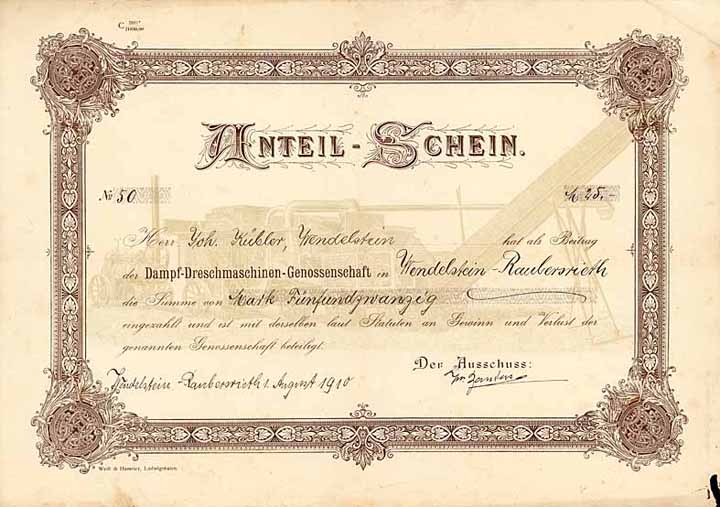 ANTEIL-SCHEIN.
№ 50 M 25.-
Herr Joh. Kübler, Wendelstein hat als Beitrag
der Dampf-Dreschmaschinen-Genossenschaft in Wendelstein-Raubersrieth
die Summe von Mark Fünfundzwanzig
eingezahlt und ist mit derselben laut Statuten an Gewinn und Verlust der
genannten Genossenschaft beteiligt.
Der Ausschuss:
Wendelstein-Raubersrieth 1. August 1910
Ludwigshafen